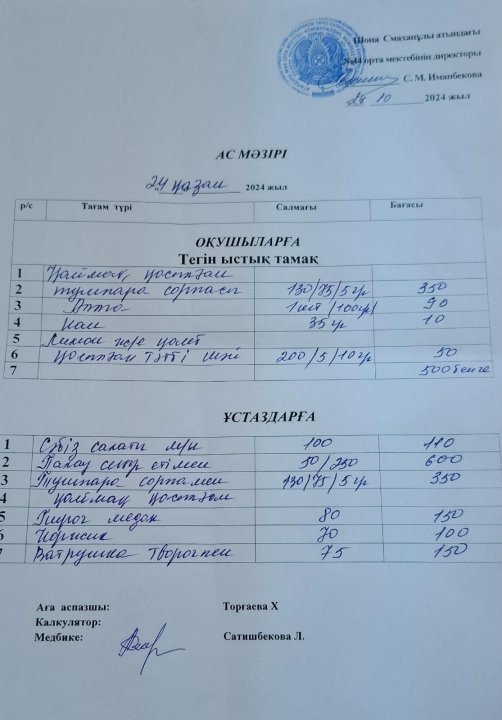 Шона Смаханұлы атындағы
№44 орта мектебінің директоры
С. М. Иманбекова
24 10 2024 жыл
АС МӘЗІРІ
24 қазан 2024 жыл
р/с Тағам түрі Салмағы Бағасы
ОҚУШЫЛАРҒА
Тегін ыстық тамақ
1 Қаймақ қосылған
2 тұшпара сорпасы 130/75/5гр 350
3 Алма 1шт/100гр/ 90
4 нан 35 гр 10
5 Лимон және қант
6 қосылған тәтті шәй 200/5/10гр 50
7 500теңге
ҰСТАЗДАРҒА
1 Сәбіз салаты 100 110
2 Палау сиыр етімен 50/250 600
3 Тушпара сорпамен 130/75/5гр 350
4 қаймақ қосылған
5 Пирог медок 80 150
6 70 100
Ватрушка творогпен 75 150
Аға аспазшы: Торғаева Х
Калкулятор:
Медбике: Сатишбекова Л.